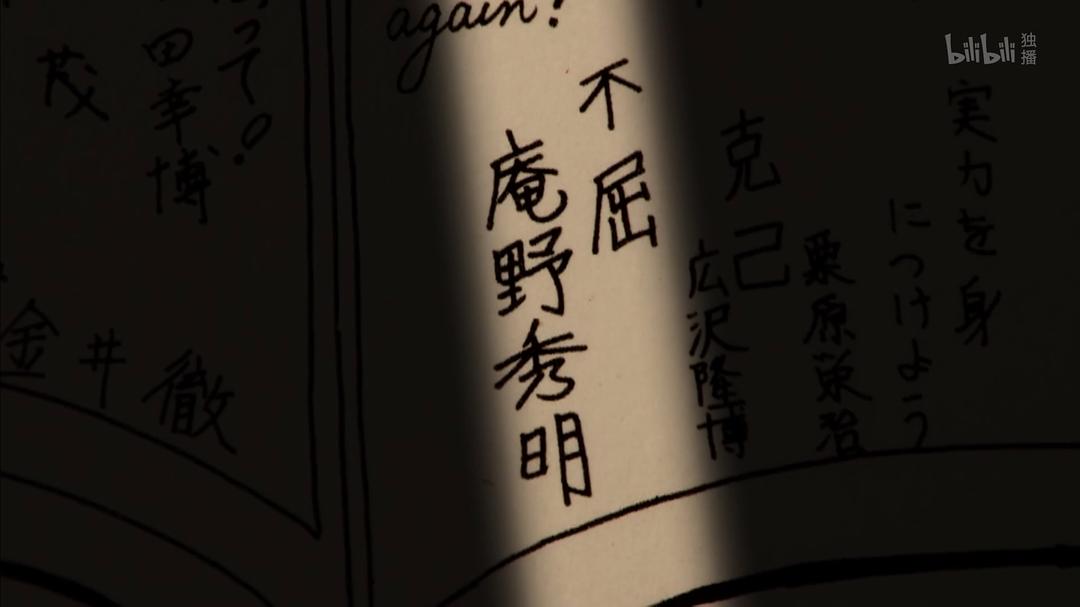 bilibili 独播
実力を身
につけよう
栗原栄治
克己
広沢隆博
不屈
庵野秀明
again!
って!
田幸博
茂
金井徹